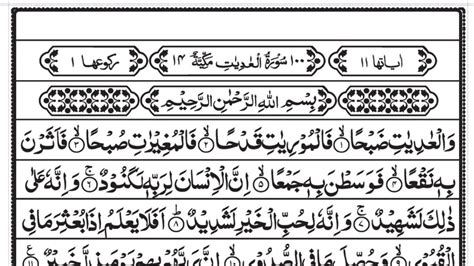 اٰیاتھا ۱۱ ۱۰۰ سُوْرَةُ الْعٰدِيٰتِ مَكِّيَّةٌ ۱۴ رکوعھا ۱
بِسْمِ اللّٰهِ الرَّحْمٰنِ الرَّحِيْمِ
وَالْعٰدِيٰتِ ضَبْحًا ۱ فَالْمُوْرِيٰتِ قَدْحًا ۲ فَالْمُغِيْرٰتِ صُبْحًا ۳ فَاَثَرْنَ
بِهٖ نَقْعًا ۴ فَوَسَطْنَ بِهٖ جَمْعًا ۵ اِنَّ الْاِنْسَانَ لِرَبِّهٖ لَكَنُوْدٌ ۶ وَاِنَّهٗ عَلٰى
ذٰلِكَ لَشَهِيْدٌ ۷ وَاِنَّهٗ لِحُبِّ الْخَيْرِ لَشَدِيْدٌ ۸ اَفَلَا يَعْلَمُ اِذَا بُعْثِرَ مَا فِى
الْقُبُوْرِ ۹ وَحُصِّلَ مَا فِى الصُّدُوْرِ ۱۰ اِنَّ رَبَّهُمْ بِهِمْ يَوْمَئِذٍ لَّخَبِيْرٌ ۱۱